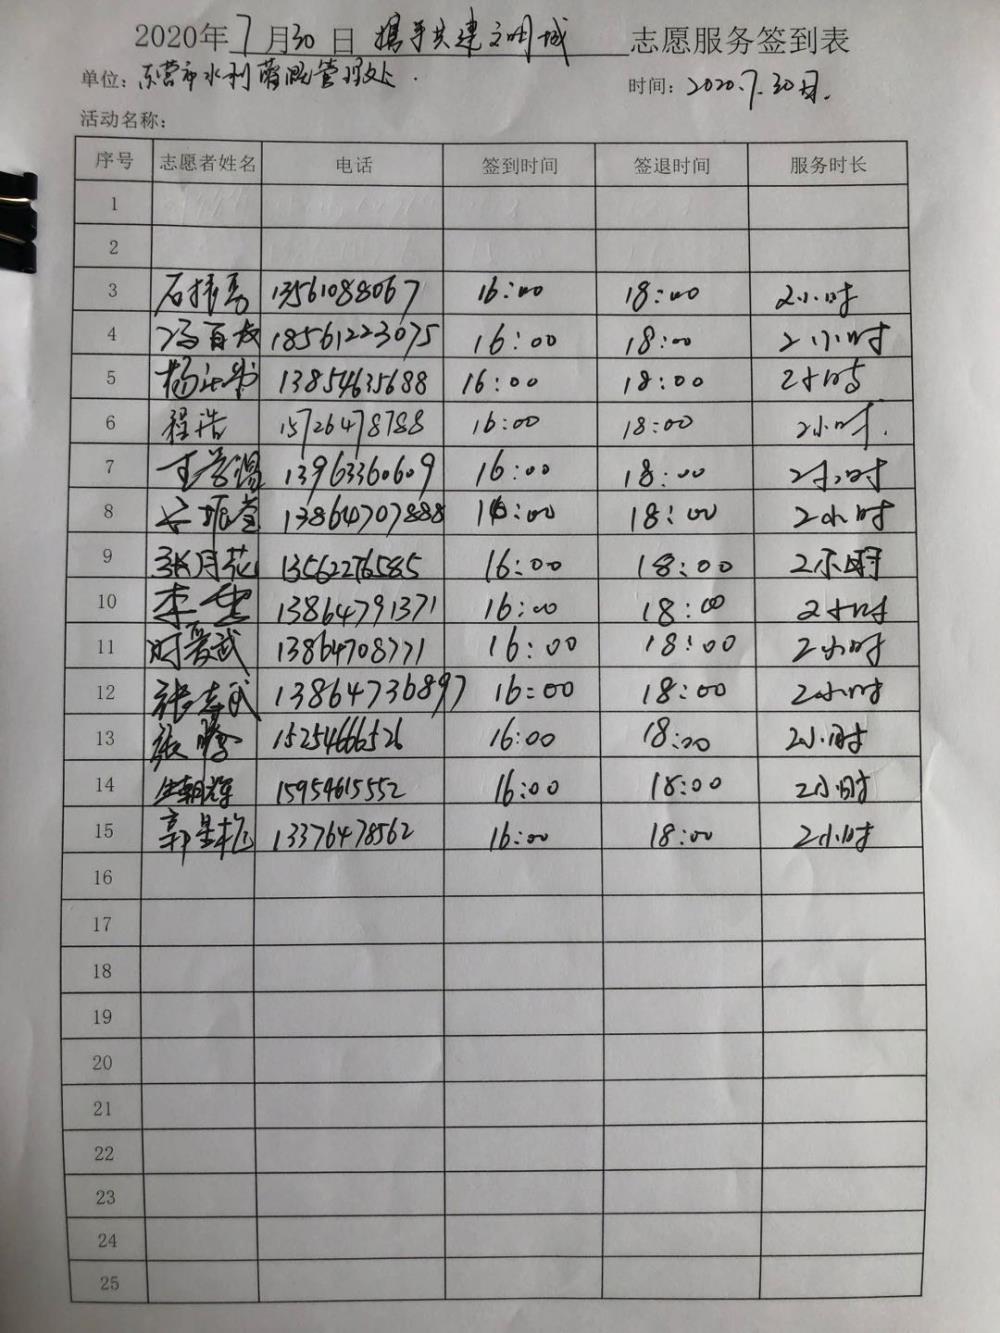 2020年7月30日 携手共建文明城 志愿服务签到表
单位：东营市水利灌溉管理处. 时间：2020.7.30日.
活动名称：
序号 志愿者姓名 电话 签到时间 签退时间 服务时长
1
2
3 13561088067 16:00 18:00 2小时
4 18561223075 16:00 18:00 2小时
5 13854635688 16:00 18:00 2小时
6 程浩 15726478788 16:00 18:00 2小时.
7 13963360609 16:00 18:00 2小时
8 13864707888 16:00 18:00 2小时
9 张月花 13562276585 16:00 18:00 2小时
10 13864791371 16:00 18:00 2小时
11 时爱武 13864708771 16:00 18:00 2小时
12 张志武 13864736897 16:00 18:00 2小时
13 15254666526 16:00 18:00 2小时
14 15954615552 16:00 18:00 2小时
15 13376478562 16:00 18:00 2小时
16
17
18
19
20
21
22
23
24
25